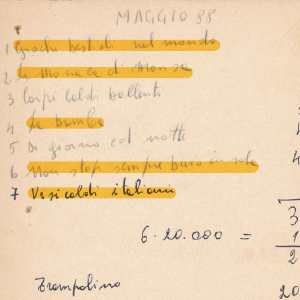 MAGGIO 88
1 Giochi bestiali nel mondo
2 la Monaca di Monza
3 Corpi caldi bollenti
4 La bimba
5 Di giorno e di notte
6 Non stop sempre buio in sala
7 Vizi caldi italiani
6 · 20.000 =
3
1
2
Trampolino
20